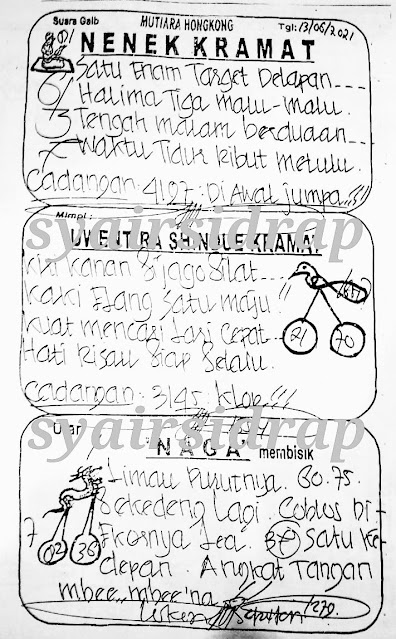 Suara Gaib MUTIARA HONGKONG Tgl: 13/06/2021
NENEK KRAMAT
Satu Enam Target Delapan
Halima Tiga Malu-Malu.
Tengah malam berduaan
Waktu Tidur Ribut Melulu.
Cadangan: 4127: Di Awal jumpa..!!!
syairsidrap
Mimpi:
KRAMAT
Kiri Kanan Si jago Silat
Kaki Elang Satu Maju!!
Kuat mencari Lari Cepat
Hati Risau Siap Selalu.
21 70
Cadangan: 3145: Klop!!!
syairsidrap
Ular
"NAGA" membisik
Limau Purutnya. 80.75.
Sekedeng Lagi. Coblos Di-
Ekornya Lea. Satu Ke-
depan. Angkat Tangan
7 02 36
mbee...mbee'na